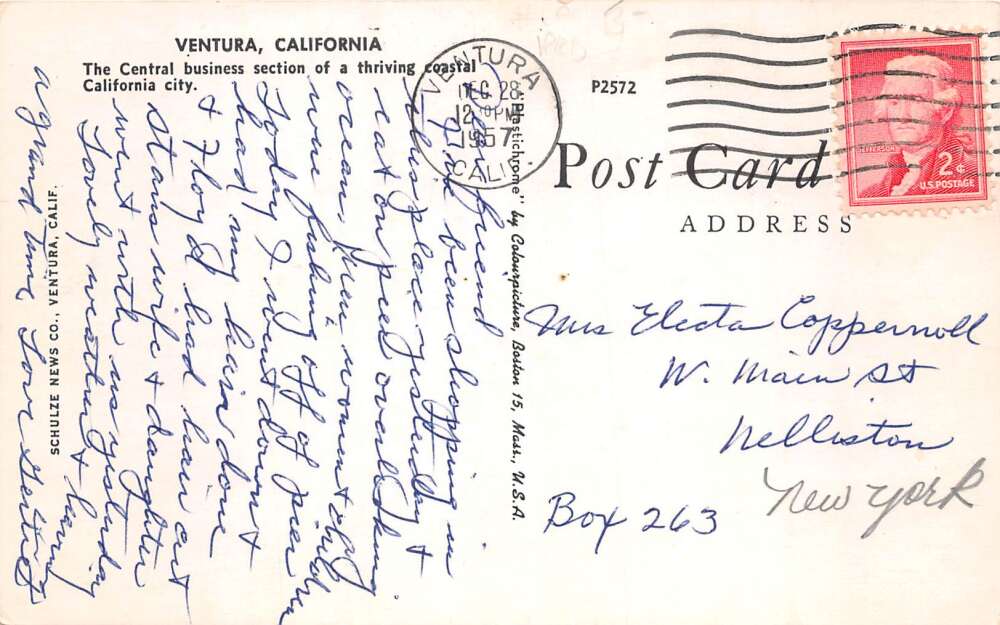 VENTURA, CALIFORNIA
The Central business section of a thriving coastal
California city.
P2572
VENTURA
DEC 28
12 PM
1957
CALIF
JEFFERSON
2¢
U.S. POSTAGE
Post Card
ADDRESS
Mrs Electa Coppernoll
W. Main St
Nelliston
New York
Box 263
"Plastichrome" by Colourpicture, Boston 15, Mass., U.S.A.
SCHULZE NEWS CO., VENTURA, CALIF.
Dear friend
Have been shopping in
this place yesterday &
eat on pier overlooking
ocean, men women & children
were fishing off of pier
Today I went down &
had my hair done
& Floyd had hair cut
Stans wife & daughter
went with us yesterday
Lovely weather & having
a grand time Love